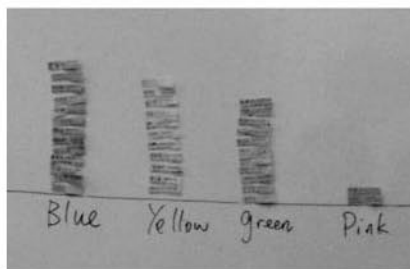 Blue Yellow green Pink